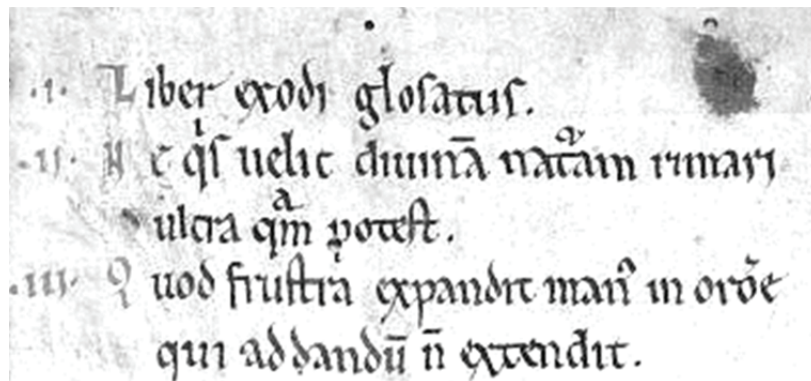 .ı. Liber exodi glosatus.
.ıı. Ne qͥs uelit diuinā natᷓam rimari
ultra qᷓm potest.
.ııı. Quod frustra expandit manꝰ in orōe
qui ad dandū n̄ extendit.